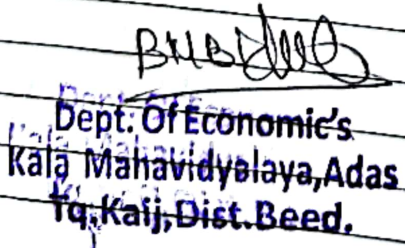 Dept. Of Economic's
Kala Mahavidyalaya,Adas
Tq.Kaij,Dist.Beed.